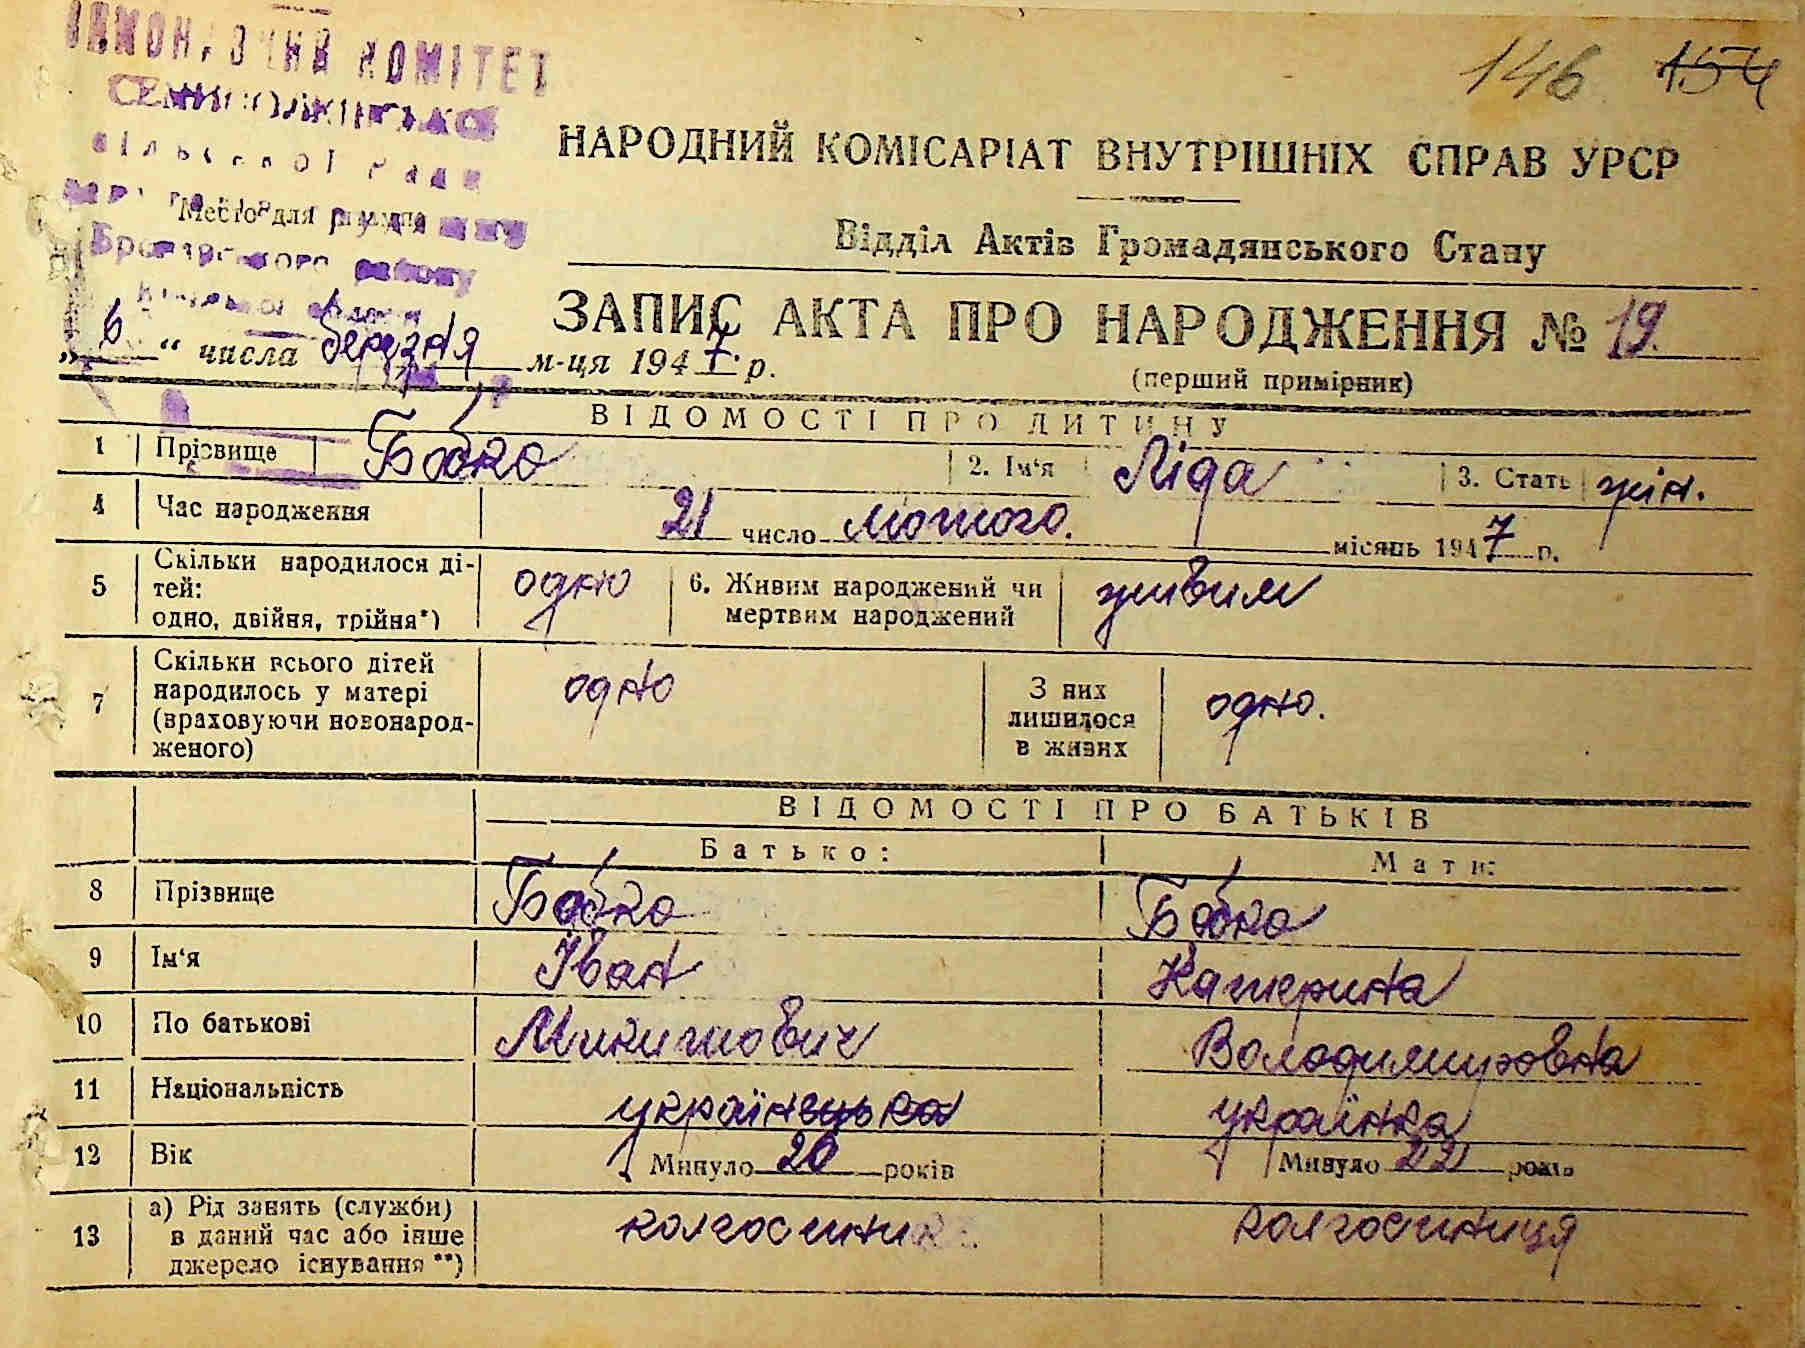 146 154
ВИКОНАВЧИЙ КОМІТЕТ
СЕМИПОЛКІВСЬКОЇ
сільської Ради
Место для штампа
Броварського району
Київської області
НАРОДНИЙ КОМІСАРІАТ ВНУТРІШНІХ СПРАВ УРСР
Відділ Актів Громадянського Стану
ЗАПИС АКТА ПРО НАРОДЖЕННЯ № 19.
„6“ числа березня м-ця 1947. р.
(перший примірник)
ВІДОМОСТІ ПРО ДИТИНУ
1 Прізвище Бобко 2. Ім'я Ліда 3. Стать жін.
4 Час народження 21 число лютого. місяць 1947 р.
5 Скільки народилося ді-
тей:
одно, двійня, трійня*) одно
6. Живим народжений чи
мертвим народжений живим
7 Скільки всього дітей
народилось у матері
(враховуючи новонарод-
женого) одно
З них
лишилося
в живих одно.
ВІДОМОСТІ ПРО БАТЬКІВ
Батько: Мати:
8 Прізвище Бобко Бобко
9 Ім'я Іван Катерина
10 По батькові Микитович Володимировна
11 Національність українська українка
12 Вік Минуло 20 років Минуло 22 років
13 а) Рід занять (служби)
в даний час або інше
джерело існування **) колгоспник колгоспниця